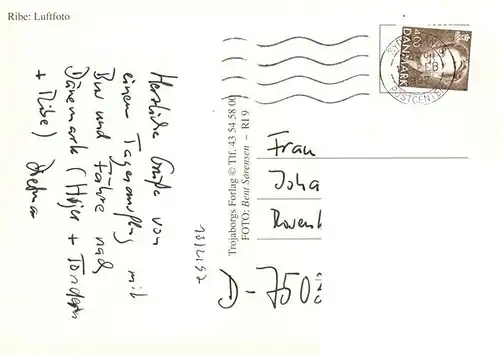 Ribe: Luftfoto
Herzliche Grüße von
einem Tagesausflug mit
Bus und Fähre nach
Dänemark (Højer + Tondern
+ Ribe) Dietmar
Trojaborgs Forlag © Tlf. 43 54 58 00
FOTO: Bent Sørensen – RI 9
DANMARK
POSTCENTER
Frau
Joha
D-750